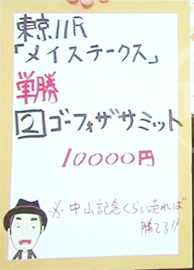 東京11R
「メイステークス」
単勝
2 ゴーフォザサミット
10000円
※中山記念くらい走れば
勝てる!!